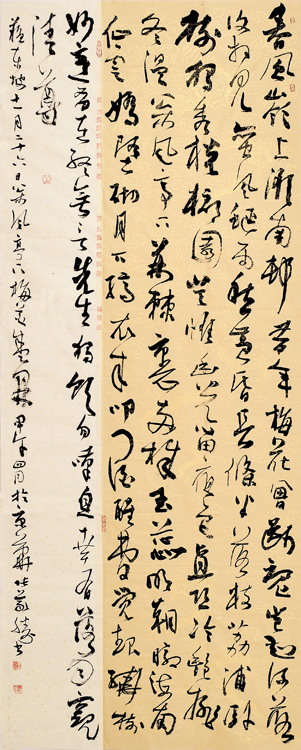 春風嶺上淮南村昔年梅花曾斷魂豈知流落
復相見蠻風蜑雨愁黃昏長條半落枝荔浦臥
樹獨秀桄榔園豈惟幽光留夜色直恐冷艷排
冬溫松風亭下荊棘裏兩株玉蕊明朝暾海南
仙雲嬌墮砌月下縞衣來叩門酒醒夢覺起繞樹
妙意有在終無言先生獨飲勿嘆息幸有落月窺
清尊
蘇東坡十一月二十六日松風亭下梅花盛開甲午年四月於京華